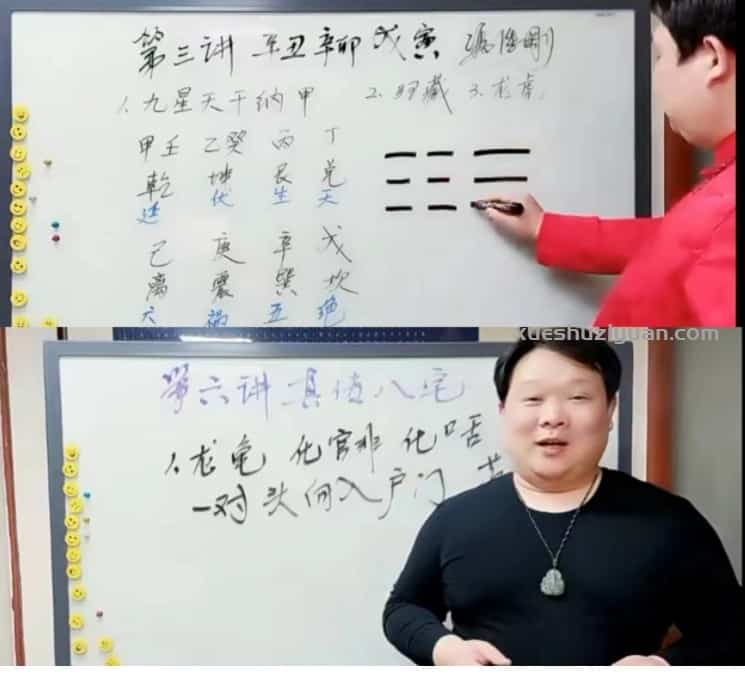 第三讲 辛丑 辛卯 戊寅
1、九星天干纳甲 2、归藏 3、龙虎
甲壬 乙癸 丙 丁
乾 坤 艮 兑
延 伏 生 天
己 庚 辛 戊
离 震 巽 坎
六 祸 五 绝
xueshuziyuan.com
第六讲 真值八宅
1、龙龟 化官非 化口舌
一对 头向入户门